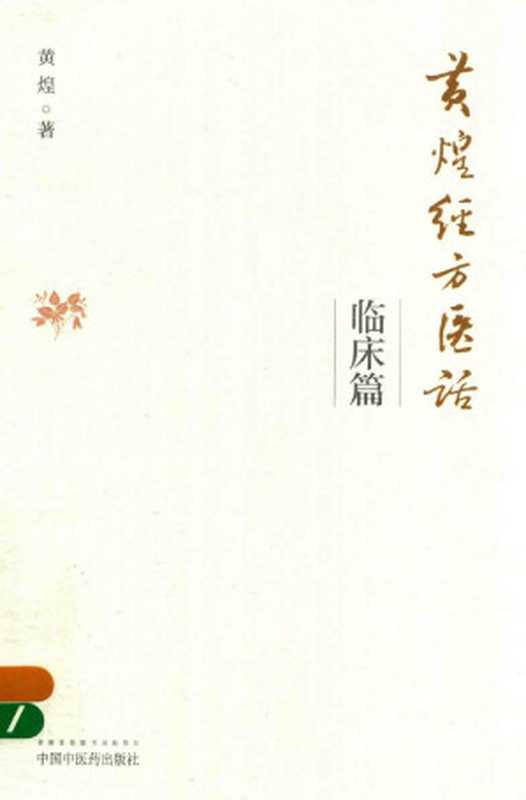 黄煌经方医话
临床篇
黄煌◎著
中国中医药出版社